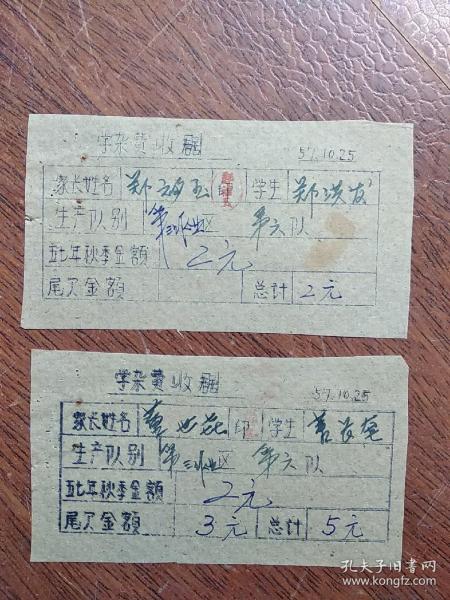 学杂费收据
57.10.25
家长姓名 郑 玉 印 学生 郑洪友
生产队别 第三作业区 第六队
五七年秋季金额 2元
尾欠金额 总计 2元
学杂费收据
57.10.25
家长姓名 世花 印 学生
生产队别 第三作业区 第六队
五七年秋季金额 2元
尾欠金额 3元 总计 5元
孔夫子旧书网
www.kongfz.com